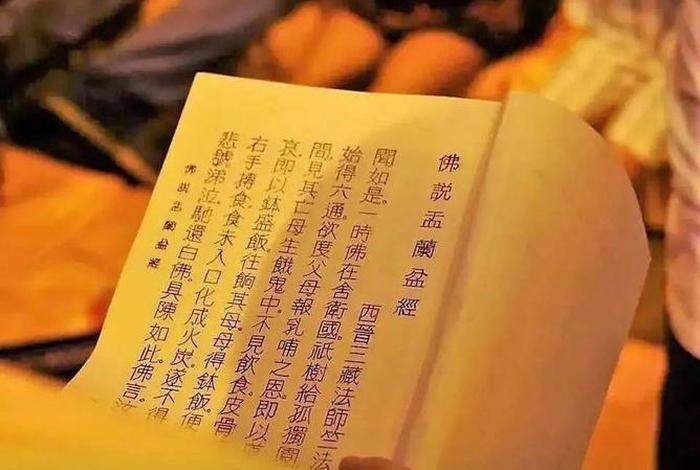 佛說盂蘭盆經
西晉三藏法師竺法
聞如是。一時佛在舍衛國。祇樹給孤獨園
始得六通。欲度父母報乳哺之恩。即以道
間。見其亡母生餓鬼中。不見飲食。皮骨
哀。即以鉢盛飯。往餉其母。母得鉢飯。便
右手搏食。食未入口化成火炭。遂不得
悲號涕泣。馳還白佛。具陳如此。佛言。汝
佛說盂蘭盆經